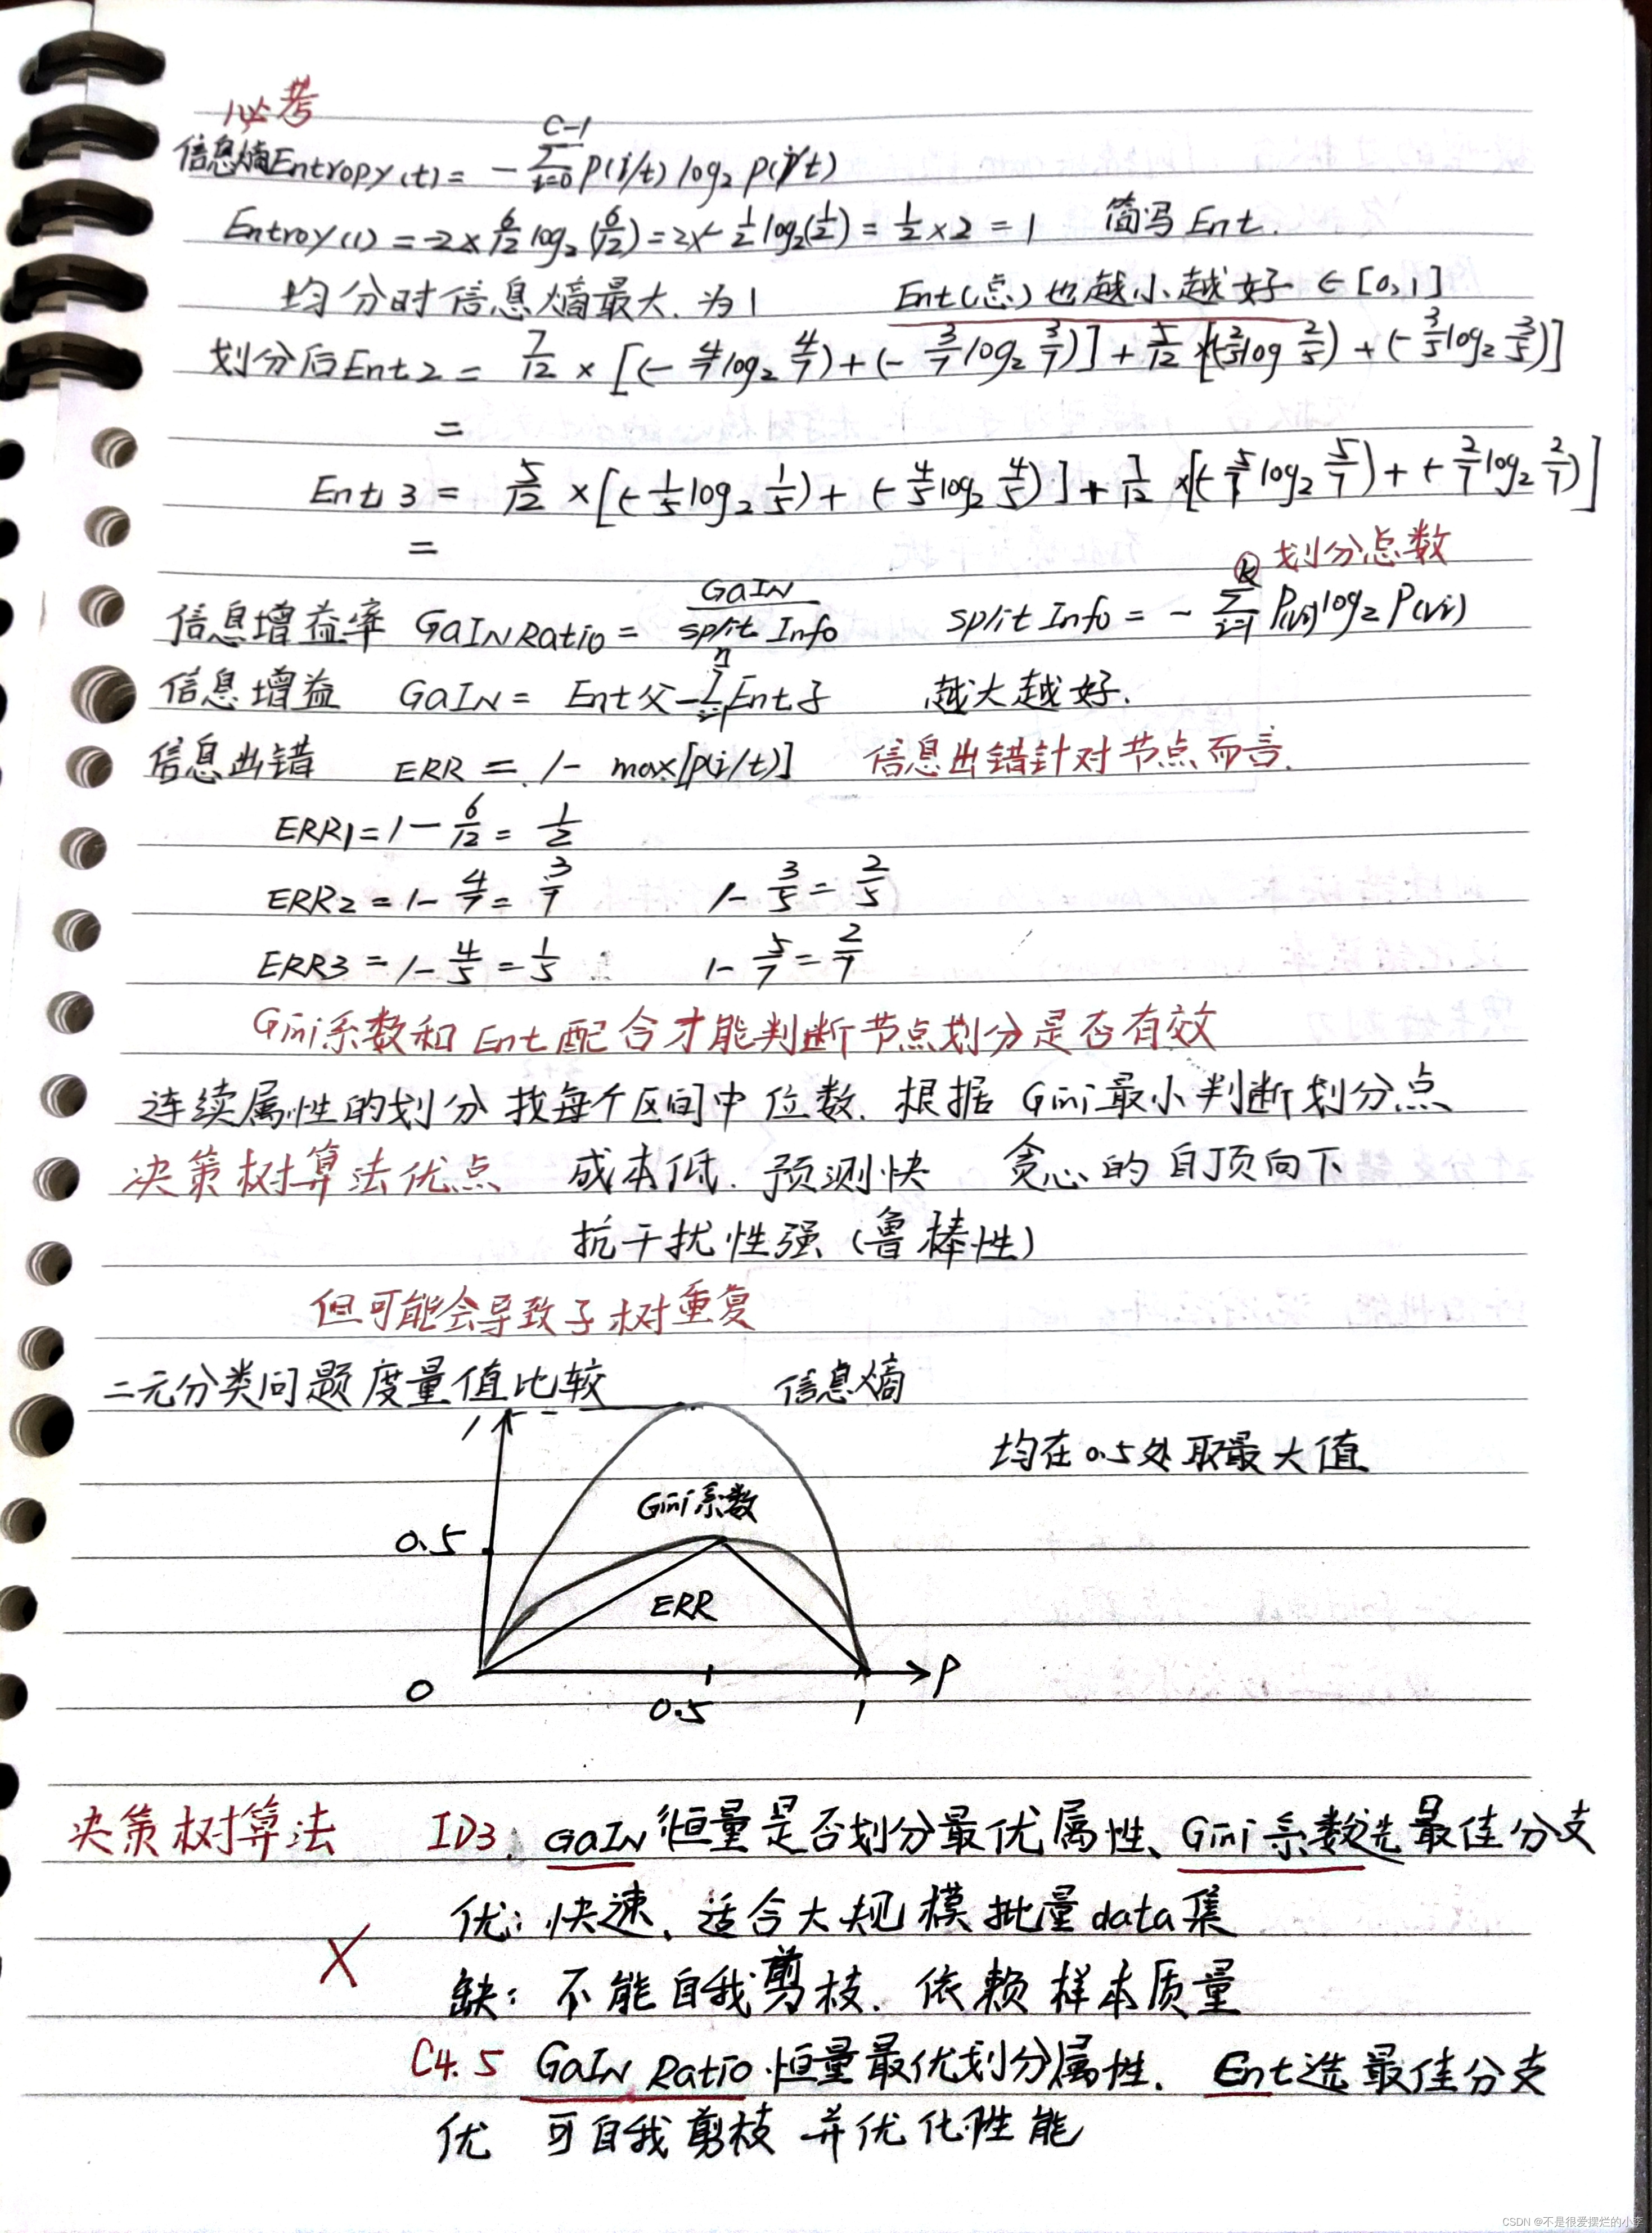 必考
信息熵Entropy(t) = - ∑_{i=0}^{C-1} P(i/t) log₂ P(i/t)
Entroy(1) = -2× 6/12 log₂(6/12) = 2×-1/2 log₂(1/2) = 1/2 ×2 = 1 简写 Ent.
均分时信息熵最大.为1 Ent(总)也越小越好 ∈[0,1]
划分后Ent2 = 7/12 × [(-4/7 log₂ 4/7) + (-3/7 log₂ 3/7)] + 5/12 ×[(-2/5 log 2/5) + (-3/5 log₂ 3/5)]
=
Ent3 = 5/12 × [(-1/5 log₂ 1/5) + (-4/5 log₂ 4/5)] + 7/12 ×[(-5/7 log₂ 5/7) + (-2/7 log₂ 2/7)]
=
信息增益率 GaINRatio = GaIN / split Info split Info = - ∑_{i=1}^{k} P(vi) log₂ P(vi) 划分总数
信息增益 GaIN = Ent父 - ∑_{i=1}^{n} Ent子 越大越好.
信息出错 ERR = 1- max[p(i/t)] 信息出错针对节点而言.
ERR1 = 1 - 6/12 = 1/2
ERR2 = 1- 4/7 = 3/7 1- 3/5 = 2/5
ERR3 = 1- 4/5 = 1/5 1- 5/7 = 2/7
Gini系数和 Ent配合才能判断节点划分是否有效
连续属性的划分 找每个区间中位数. 根据 Gini最小判断划分点
决策树算法优点 成本低. 预测快 贪心的自顶向下
抗干扰性强(鲁棒性)
但可能会导致子树重复
二元分类问题度量值比较 信息熵
1
均在0.5处取最大值
Gini系数
0.5
ERR
0 0.5 1 P
决策树算法 ID3. GaIN 恒量是否划分最优属性、Gini系数选最佳分支
优: 快速、适合大规模批量data集
X
缺: 不能自我剪枝. 依赖样本质量
C4.5 GaIN Ratio 恒量最优划分属性. Ent选最佳分支
优 可自我剪枝 并优化性能
CSDN @不是很爱摆烂的小李